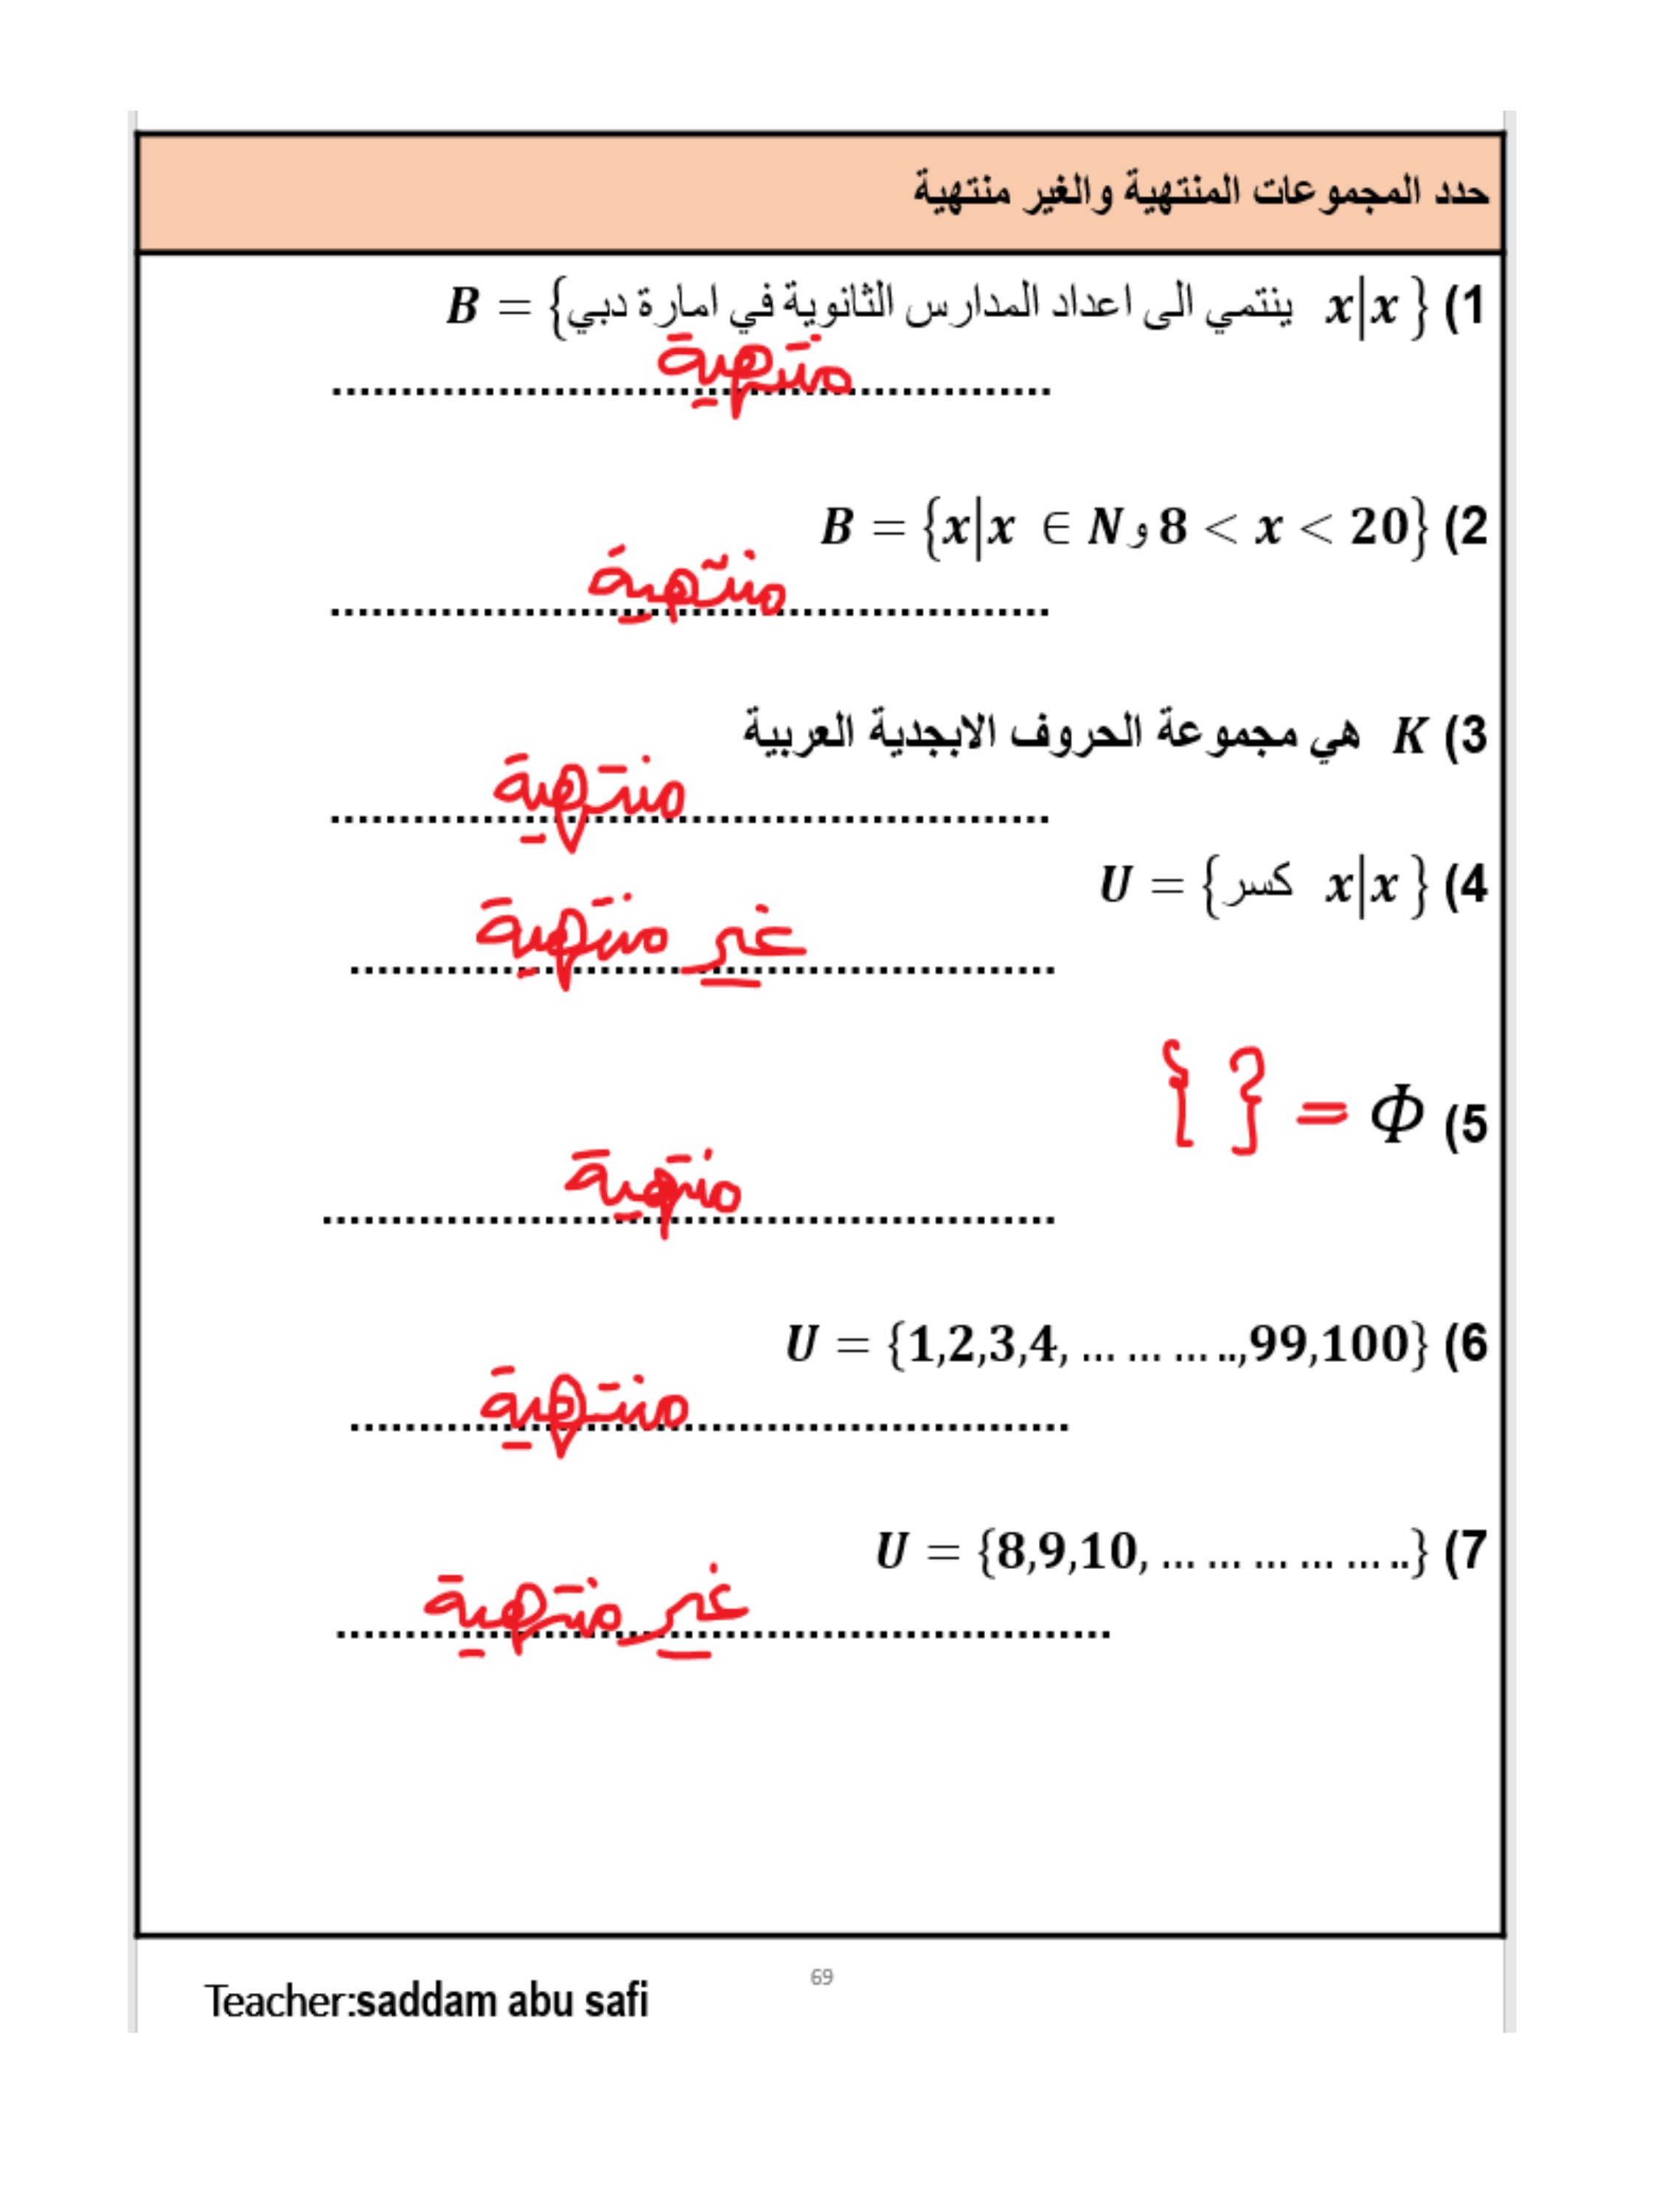 حدد المجموعات المنتهية والغير منتهية
1) B = {x|x ينتمي الى اعداد المدارس الثانوية في امارة دبي}
منتهية
2) B = {x|x ∈ N و 8 < x < 20}
منتهية
3) K هي مجموعة الحروف الابجدية العربية
منتهية
4) U = {x|x كسر}
غير منتهية
5) Φ = { }
منتهية
6) U = {1,2,3,4, ... ... ... ..,99,100}
منتهية
7) U = {8,9,10, ... ... ... ... ... ..}
غير منتهية
69
Teacher:saddam abu safi